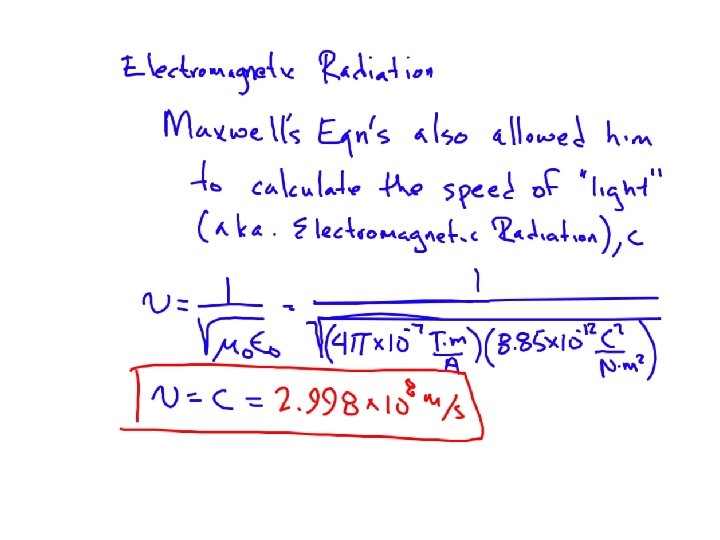 Electromagnetic Radiation
Maxwell's Eqn's also allowed him
to calculate the speed of "light"
(aka. Electromagnetic Radiation), c
v = 1/√(μ₀ε₀) = 1/√((4π×10⁻⁷ T·m/A)(8.85×10⁻¹² C²/N·m²))
v = c = 2.998×10⁸ m/s